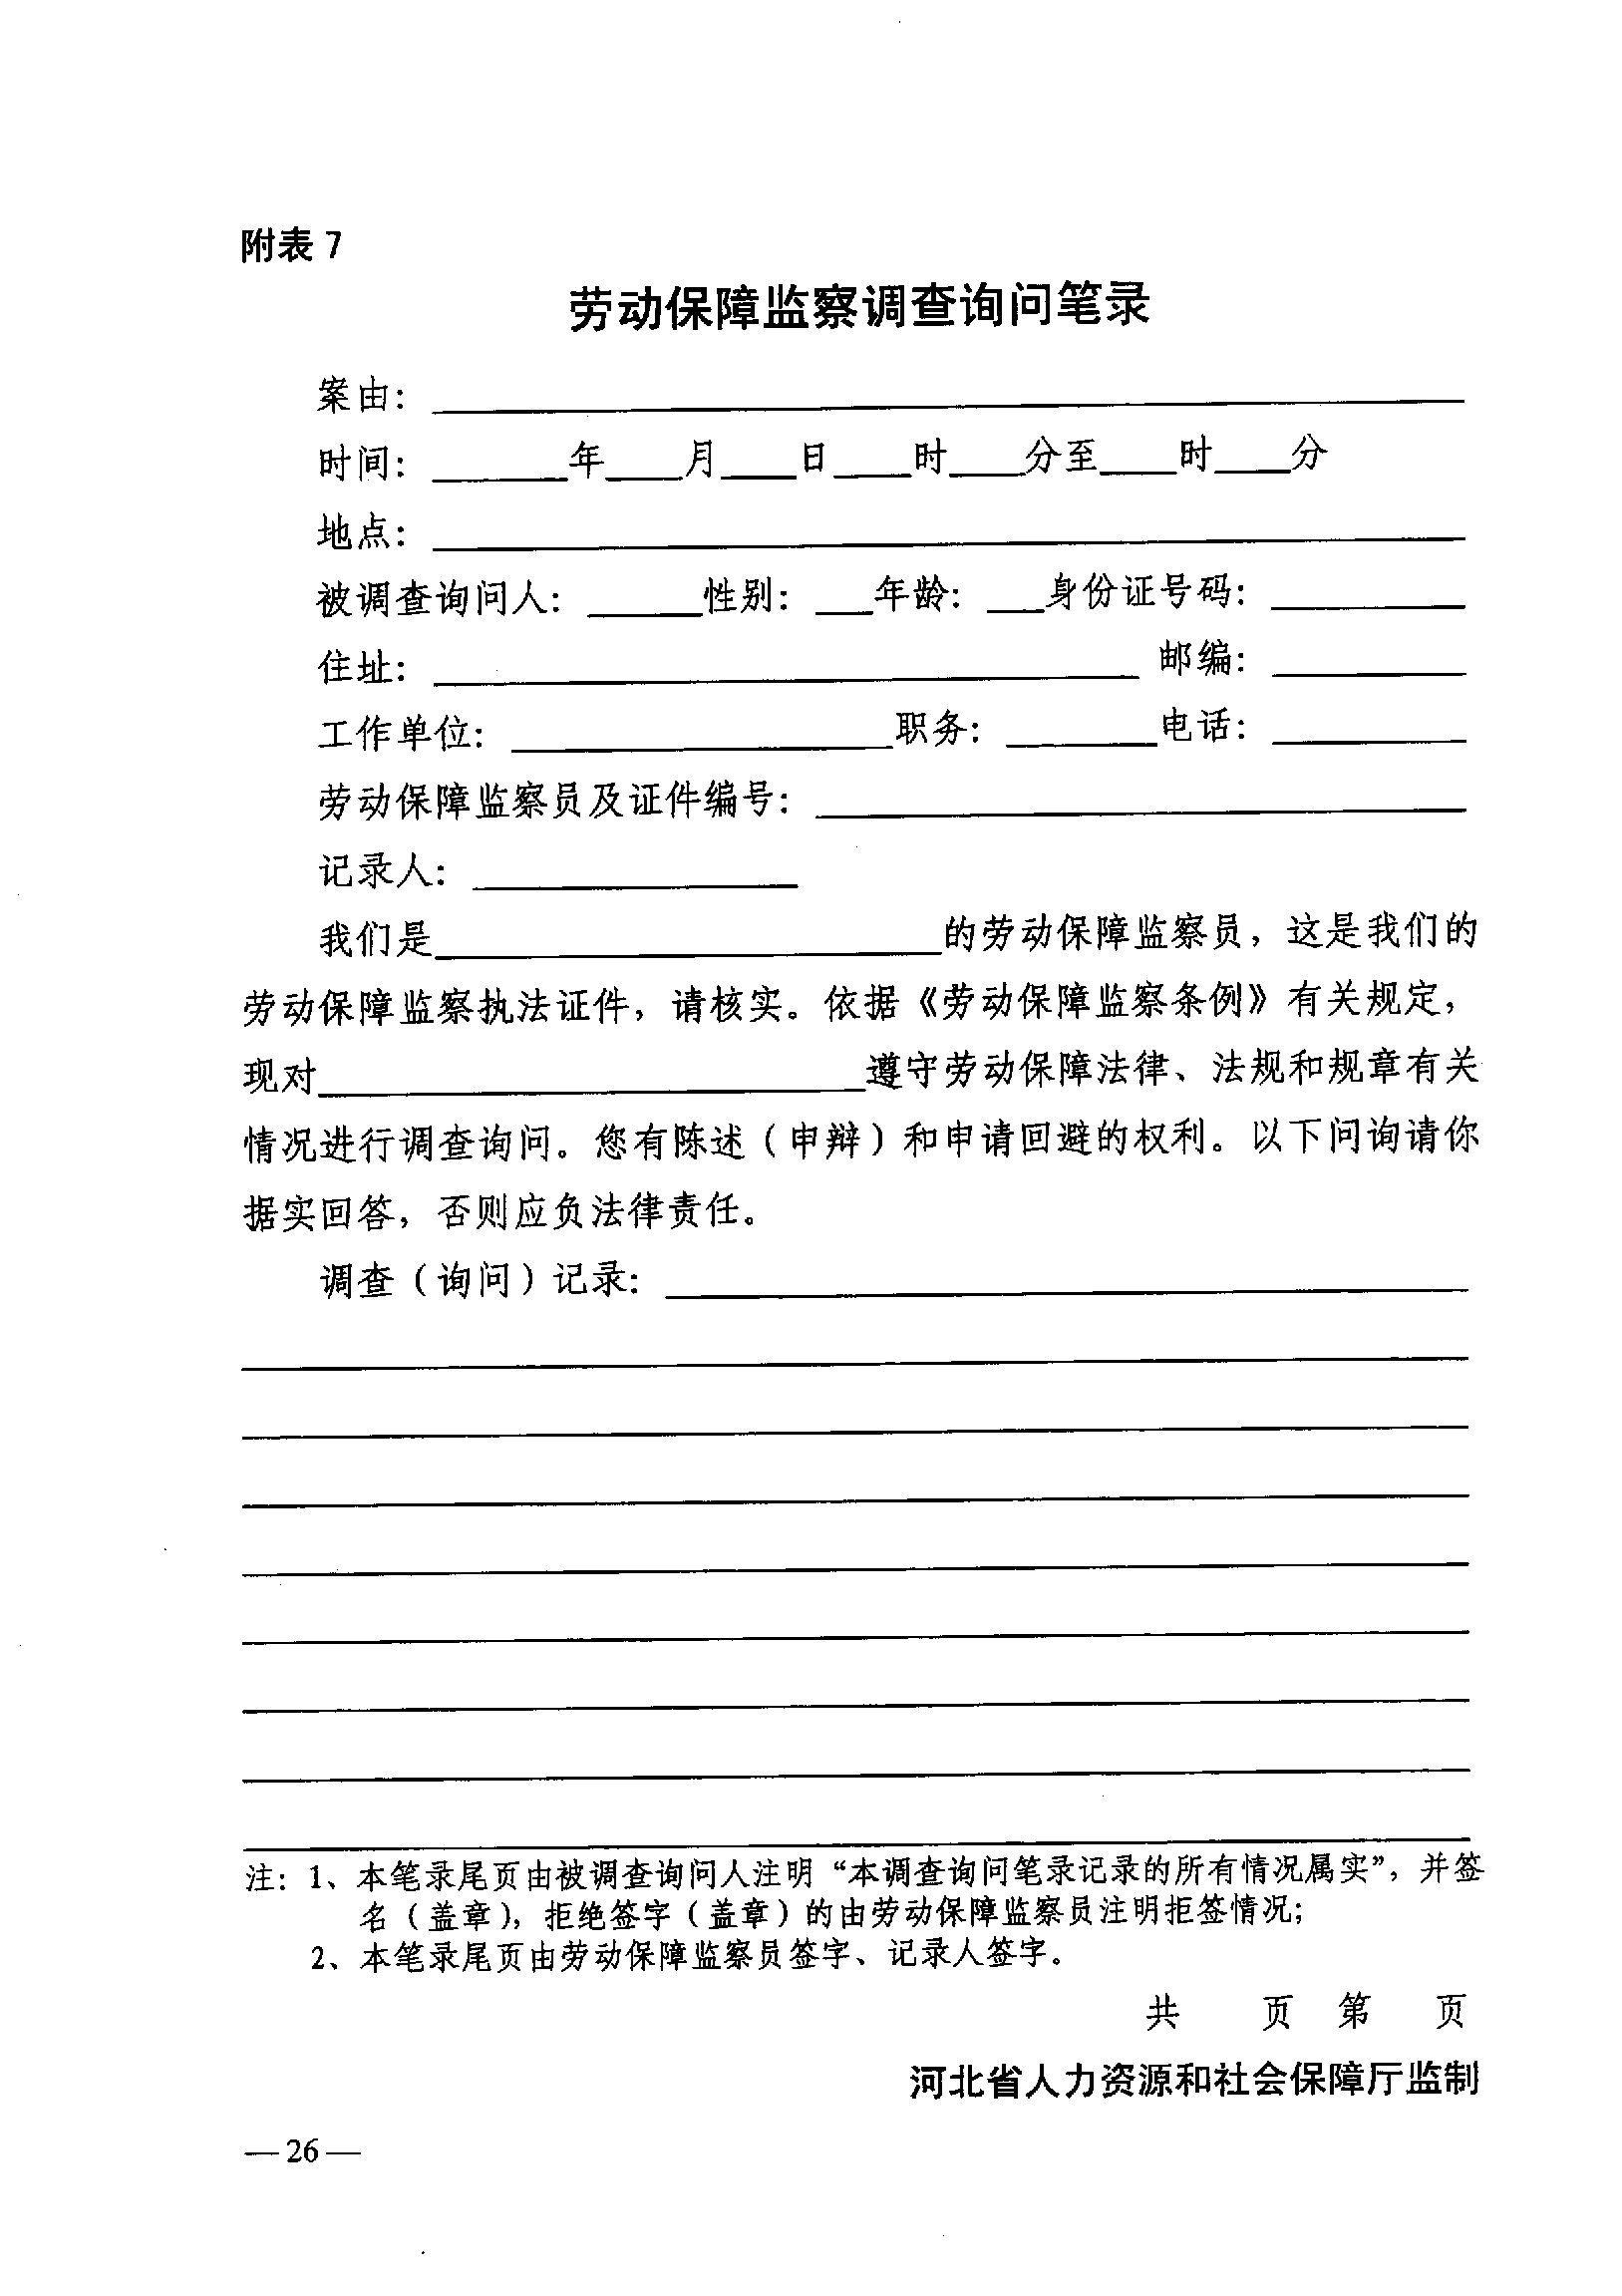 附表 7
劳动保障监察调查询问笔录
案由：
时间： 年 月 日 时 分至 时 分
地点：
被调查询问人： 性别： 年龄： 身份证号码：
住址： 邮编：
工作单位： 职务： 电话：
劳动保障监察员及证件编号：
记录人：
我们是 的劳动保障监察员，这是我们的
劳动保障监察执法证件，请核实。依据《劳动保障监察条例》有关规定，
现对 遵守劳动保障法律、法规和规章有关
情况进行调查询问。您有陈述（申辩）和申请回避的权利。以下问询请你
据实回答，否则应负法律责任。
调查（询问）记录：
注：1、本笔录尾页由被调查询问人注明“本调查询问笔录记录的所有情况属实”，并签
名（盖章），拒绝签字（盖章）的由劳动保障监察员注明拒签情况；
2、本笔录尾页由劳动保障监察员签字、记录人签字。
共 页 第 页
河北省人力资源和社会保障厅监制
— 26 —